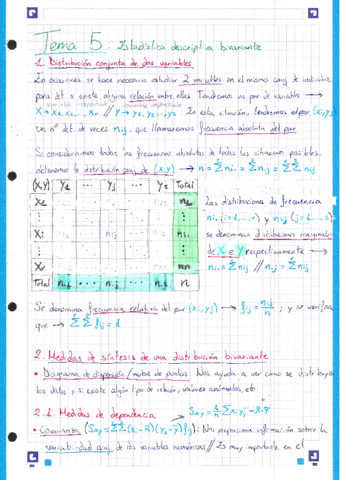 Tema 5: Estadística descriptiva bivariante
1. Distribución conjunta de dos variables
En ocasiones se hace necesario estudiar 2 variables en el mismo conj. de individuos
para det. si existe alguna relación entre ellas. Tendremos un par de variables →
variable independiente variable dependiente
X → x1, x2, ..., xr // Y → y1, y2, ..., ys En esta situación, tendremos el par (xi, yj)
un nº det. de veces nij, que llamaremos frecuencia absoluta del par
Si consideramos todas las frecuencias absolutas de todas las situaciones posibles,
obtenemos la distribución conj. de (x,y) → n = Σni. = Σn.j = ΣΣnij
(X,Y) y1 ... yj ... ys Total
x1 n1.
xi ni.
xr nr.
Total n.1 ... n.j ... n.s n
Las distribuciones de frecuencia
ni. (i=1,...,r) y n.j (j=1,...,s)
se denominan distribuciones marginales
de X e Y respectivamente →
ni. = Σnij // n.j = Σnij
Se denomina frecuencia relativa del par (xi, yj) → fij = nij/n ; y se verifica
que → ΣΣ fij = 1
2. Medidas de síntesis de una distribución bivariante
• Diagrama de dispersión / nube de puntos: Nos ayuda a ver cómo se distribuyen
los datos y si existe algún tipo de relación, valores anómalos, etc.
2.1 Medidas de dependencia Sxy = 1/n Σ xi yj - x̄·ȳ
• Covarianza (Sxy = ΣΣ(xi - x̄)(yj - ȳ) fij): Nos proporciona información sobre la
variabilidad conj. de dos variables numéricas // Es muy importante en el